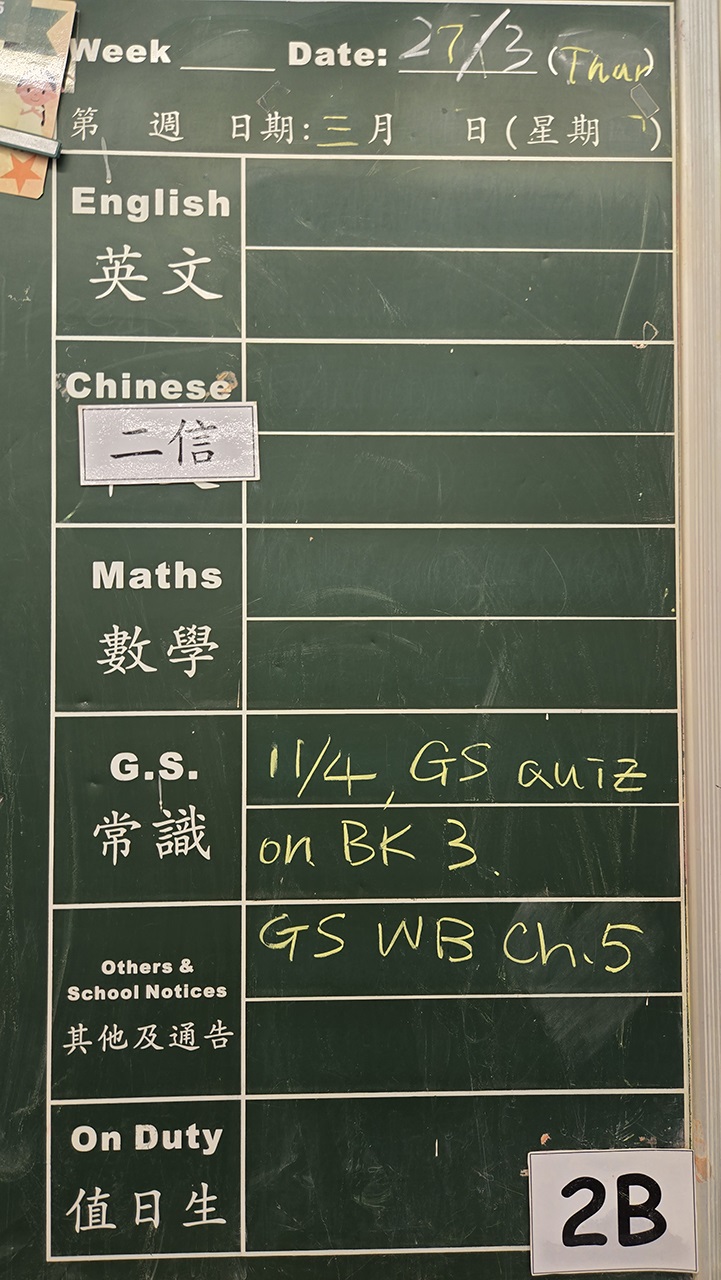 Week Date: 27/3 (Thur)
第 週 日期: 三月 日 (星期 )
English
英文
Chinese
二信
Maths
數學
G.S. 11/4, GS quiz
常識 on BK 3.
GS WB Ch.5
Others &
School Notices
其他及通告
On Duty
值日生
2B